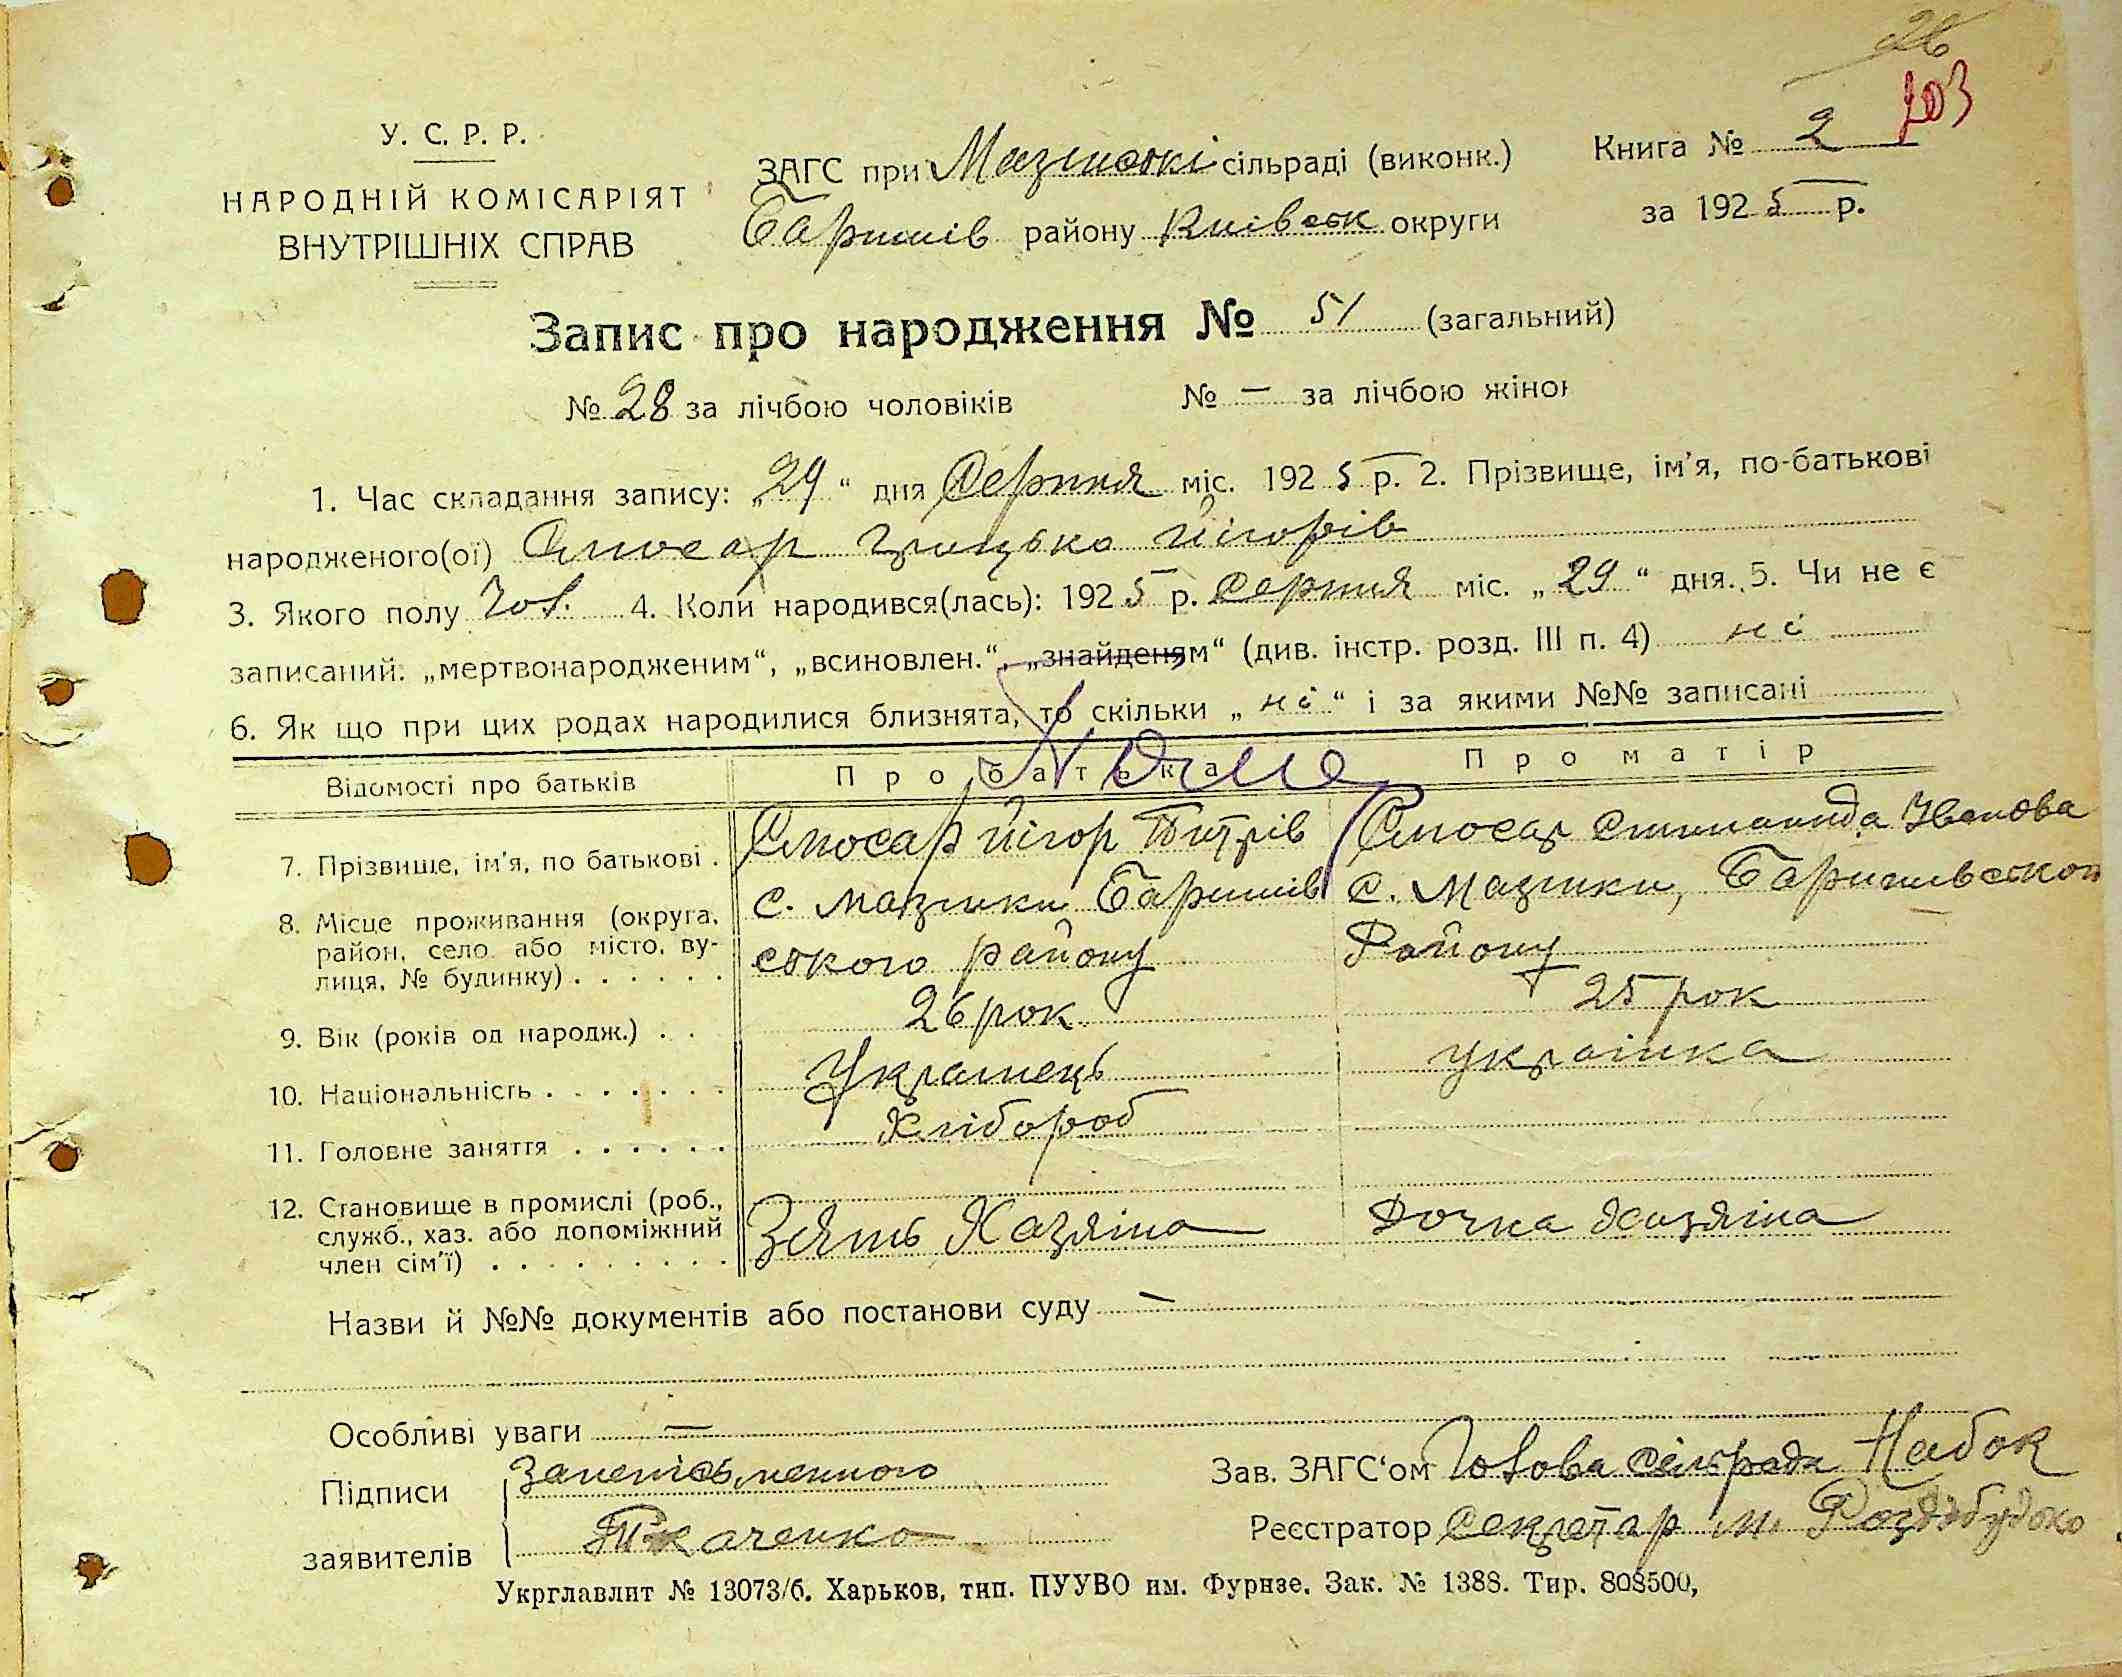 26
203
У. С. Р. Р.
НАРОДНІЙ КОМІСАРІЯТ
ВНУТРІШНІХ СПРАВ
ЗАГС при Мазінські сільраді (виконк.)
Баришів району Київськ округи
Книга № 2
за 1925 р.
Запис про народження № 51 (загальний)
№ 28 за лічбою чоловіків № — за лічбою жінок
1. Час складання запису: „29“ дня Серпня міс. 1925 р. 2. Прізвище, ім'я, по-батькові
народженого(ої) Слюсар Грицько Йігорів
3. Якого полу Чов. 4. Коли народився(лась): 1925 р. Серпня міс. „29“ дня. 5. Чи не є
записаний: „мертвонародженим“, „всиновлен.“, „знайденям“ (див. інстр. розд. III п. 4) ні
6. Як що при цих родах народилися близнята, то скільки „ні“ і за якими №№ записані
Відомості про батьків Про батька Про матір
7. Прізвище, ім'я, по батькові . Слюсар Йігор Титрів Слюсар Іванова
8. Місце проживання (округа, район, село або місто, вулиця, № будинку) . . . . . . с. Мазінки Баришів
ського району с. Мазінки, Баришівської
Району
9. Вік (років од народж.) . . 26 рок 25 рок
10. Національність . . . . . . . Українець українка
11. Головне заняття . . . . . . Хлібороб
12. Становище в промислі (роб., служб., хаз. або допоміжний член сім'ї) . . . . . . . . . Зять Хазяїна Дочка хазяїна
Назви й №№ документів або постанови суду —
Особливі уваги —
Підписи
заявителів
За неписьменного
Ткаченко
Зав. ЗАГС'ом Голова сільради Набок
Реєстратор Секретар М. Роздобудько
Укрглавлит № 13073/б. Харьков, тип. ПУУВО им. Фурнзе. Зак. № 1388. Тир. 808500,